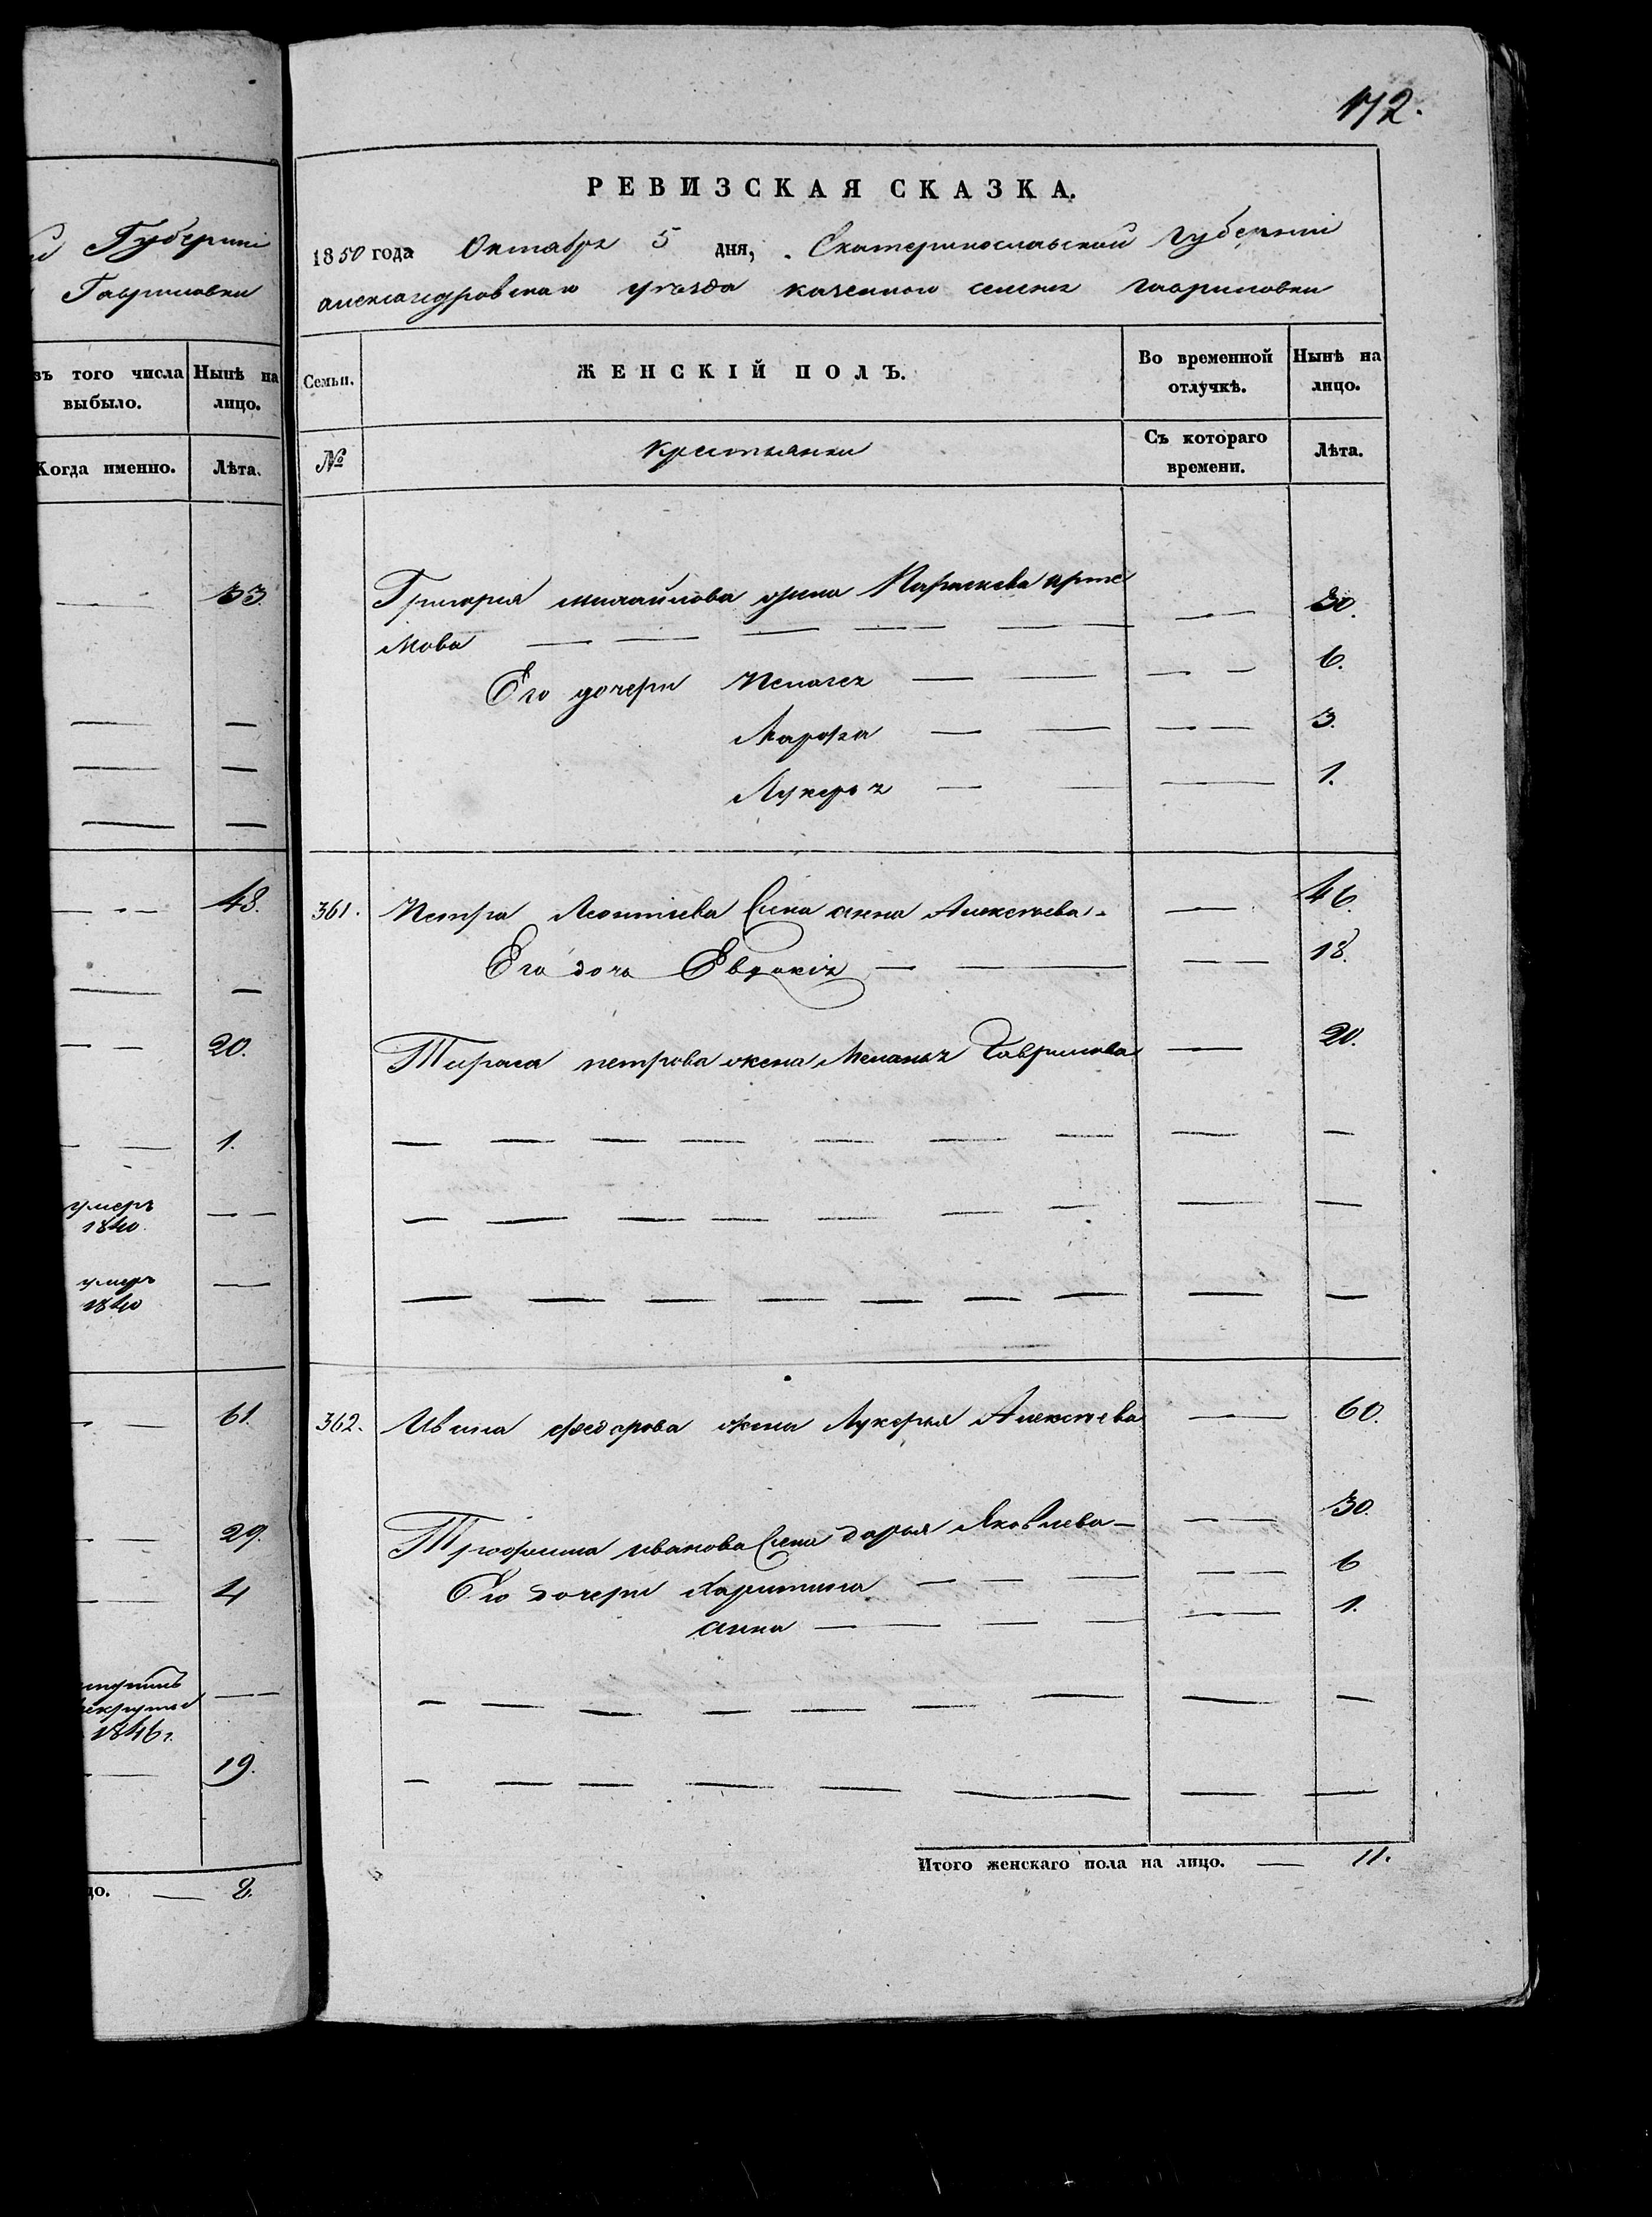 172.
Губерніи
Гавриловки
зъ того числа выбыло.
Нынѣ на лицо.
Когда именно.
Лѣта.
33.
48.
20.
1.
умеръ
1840.
умеръ
1840
61.
29.
4
1846г.
19.
цо. — 8.
РЕВИЗСКАЯ СКАЗКА.
1850 года Октября 5 дня, Екатеринославской Губерніи
александровскаго уѣзда казенного селенія гавриловки
Семьи.
ЖЕНСКІЙ ПОЛЪ.
Во временной отлучкѣ.
Нынѣ на лицо.
№
крестьянки
Съ котораго времени.
Лѣта.
Григорія михайлова жена Параскева арте — 30.
мова — — — — — —
Его дочери Пелагея — — — — 6.
Марфа — — — — 3.
Лукерья — — — 1.
361. Петра Леонтіева жена анна Алексѣева — 46.
Его дочь Евдокія — — — — 18.
Тараса петрова жена Меланья Гаврилова — 20.
— — — — — — — — —
— — — — — — — — —
— — — — — — — — —
362. Ивана федорова жена Лукерья Алексѣева — 60.
Трофима иванова жена дарья Яковлева — — — 30.
Его дочери Харитина — — — — — 6
анна — — — — — 1.
— — — — — — — —
— — — — — — — —
Итого женскаго пола на лицо. — 11.